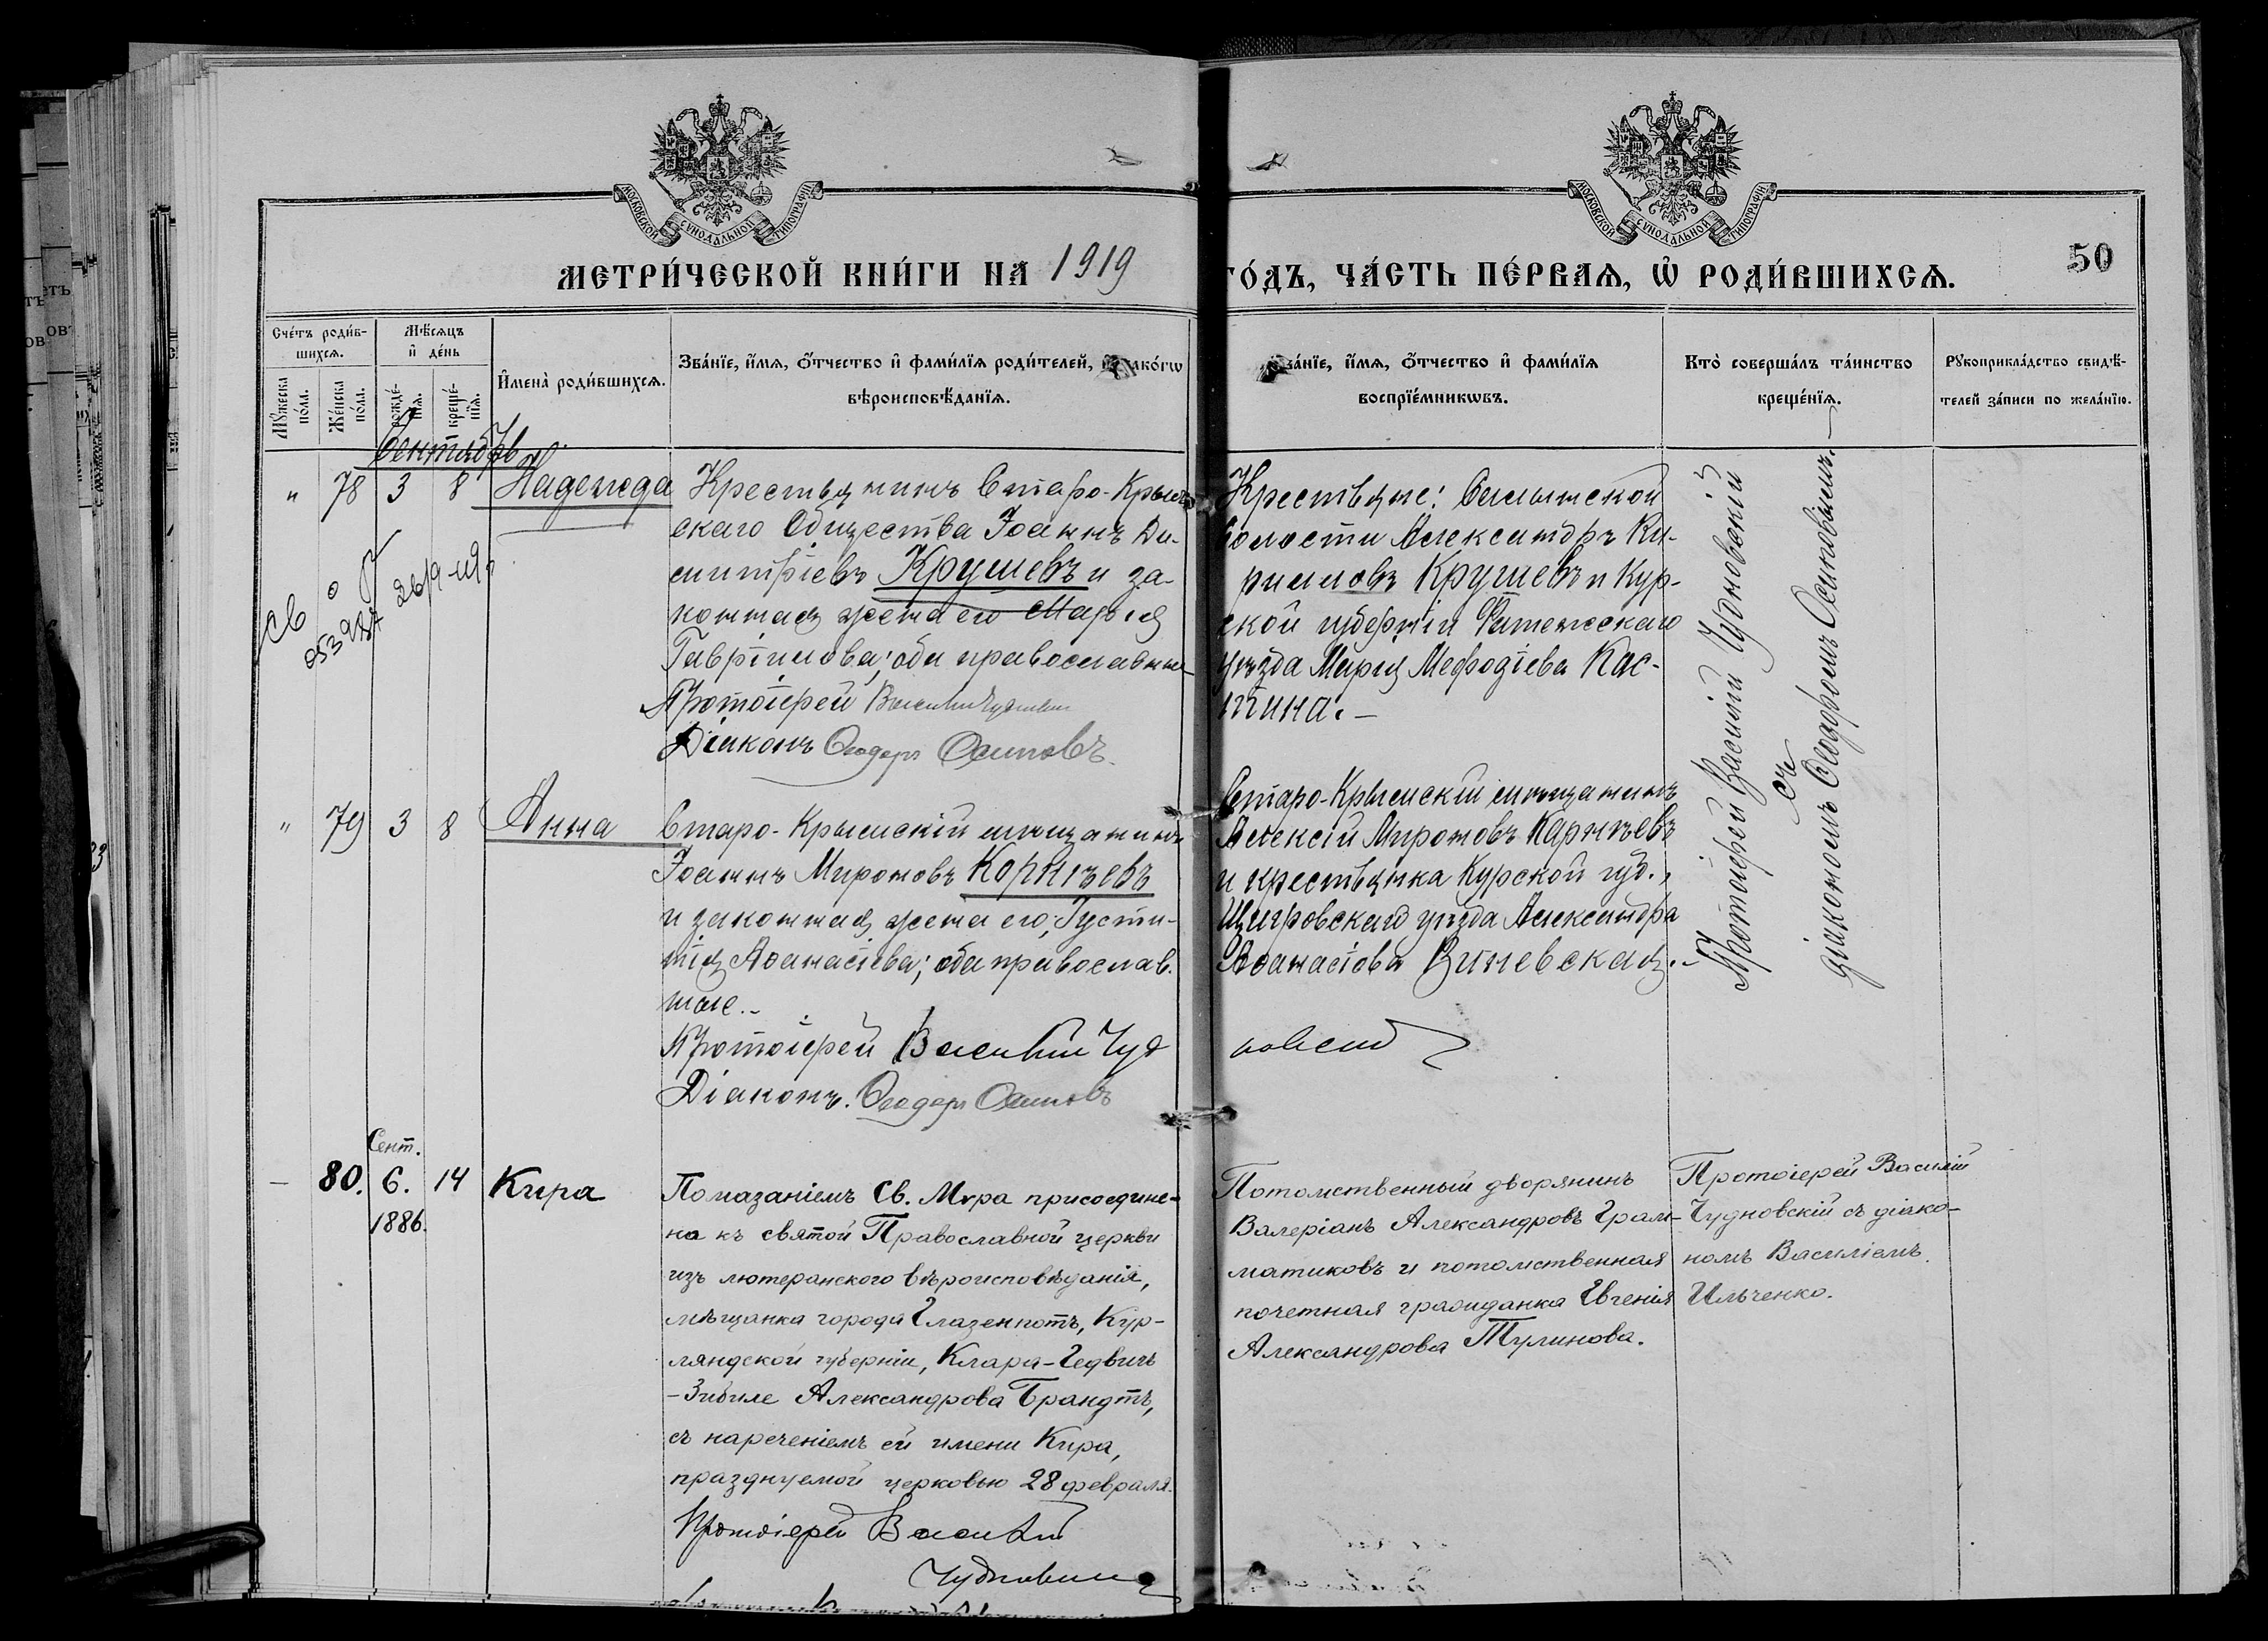 МОСКОВСКОЙ СѴНОДАЛЬНОЙ ТИПОГРАФІИ
МОСКОВСКОЙ СѴНОДАЛЬНОЙ ТИПОГРАФІИ
МЕТРИ́ЧЕСКОЙ КНИ́ГИ НА 1919
ГО́ДЪ, ЧА́СТЬ ПЕ́РВАѦ, Ѡ РОДИ́ВШИХСѦ.
50
Сче́тъ роди́в-
шихсѧ.
Мꙋ́жеска по́ла.
Же́нска по́ла.
Мѣ́сѧцъ
и҆ де́нь
рожде́-
нїѧ.
креще́-
нїѧ.
И҆мена̀ роди́вшихсѧ.
Зва́нїе, и҆́мѧ, ѻ҆́тчество и҆ фами́лїѧ роди́телей, и҆ како́гѡ
вѣроисповѣ́данїѧ.
Зва́нїе, и҆́мѧ, ѻ҆́тчество и҆ фами́лїѧ
воспрїе́мникѡвъ.
Кто̀ соверша́лъ та́инство
креще́нїѧ.
Рꙋкоприкла́дство свидѣ́-
телей за́писи по жела́нїю.
Сентябрь
" 78 3 8 Надежда
Крестьянинъ Старо-Крым-
скаго Общества Іоаннъ Ди-
митріевъ Крушевъ и за-
конная жена его Марія
Гавріилова; оба православные
Протоіерей Василий Чудновский
Діаконъ Ѳеодоръ Осиповъ.
Крестьяне:
волости Александръ Ки-
рилловъ Крушевъ и Кур-
ской губерніи Фатежскаго
уѣзда Марія Меѳодіева Кас-
кина.–
Протоіерей Василій Чудновскій
съ
діакономъ Ѳеодоромъ Осиповымъ.–
св
26/9-19
" 79 3 8 Анна
Старо-Крымскій мѣщанинъ
Іоаннъ Мироновъ Корнѣевъ
и законная жена его, Іусти-
нія Аѳанасіева; оба православ.
ные.–
Протоіерей Василий Чуд
новский
Діаконъ. Ѳеодоръ Осиповъ
Старо-Крымскій мѣщанинъ
Алексій Мироновъ Карнѣевъ
и крестьянка Курской губ.,
Щигровскаго уѣзда Александра
Аѳанасіова Виневская.–
Сент.
– 80. 6. 14 Кира
1886.
Помазаніемъ Св. Мѵра присоедине-
на къ святой Православной церкви
изъ лютеранского вѣроисповѣданія,
мѣщанка города Газенпотъ, Кур-
ляндской губерніи, Клара-Гедвигъ
-Зибиле Александрова Брандтъ,
съ нареченіемъ ей имени Кира,
празднуемой церковью 28 февраля.
Протоіерей Василий
Чудновский
Потомственный дворянинъ
Валеріанъ Александровъ Грам-
матиковъ и потомственная
почетная гражданка Евгенія
Александрова Тулинова.
Протоіерей Василій
Чудновскій съ діако-
номъ Василіемъ
Ильченко.